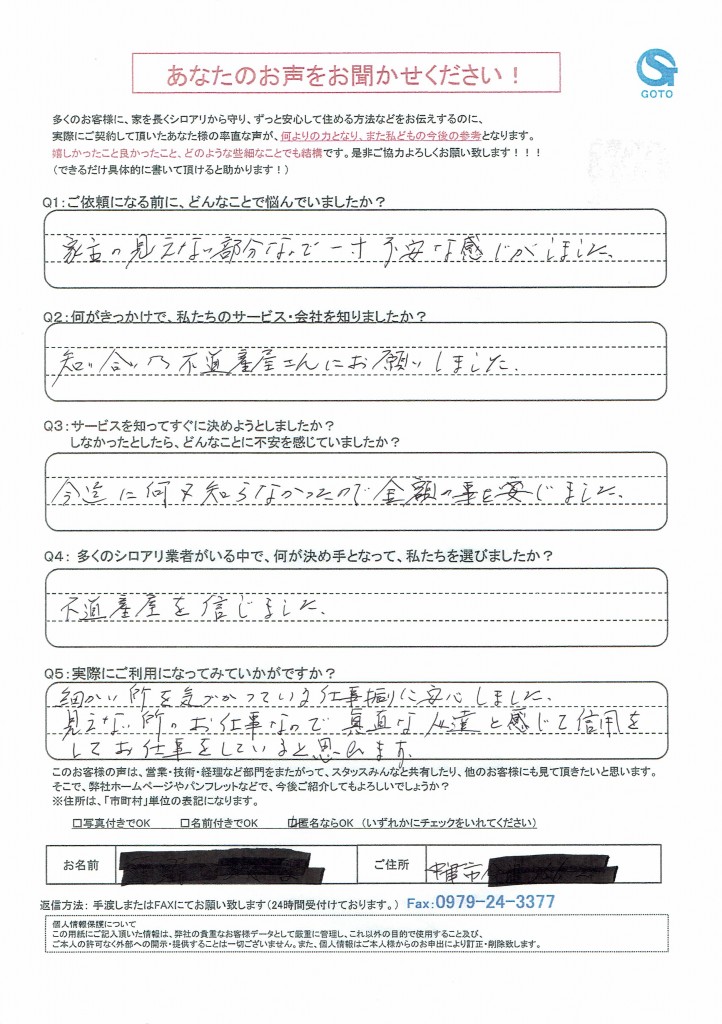 あなたのお声をお聞かせください！
GOTO
多くのお客様に、家を長くシロアリから守り、ずっと安心して住める方法などをお伝えするのに、
実際にご契約して頂いたあなた様の率直な声が、何よりの力となり、また私どもの今後の参考となります。
嬉しかったこと良かったこと、どのような些細なことでも結構です。是非ご協力よろしくお願い致します！！！
（できるだけ具体的に書いて頂けると助かります！）
Q1：ご依頼になる前に、どんなことで悩んでいましたか？
見えない部分なので一寸不安な感じがしました。
Q2：何がきっかけで、私たちのサービス・会社を知りましたか？
知り合いの不道産屋さんにお願いしました。
Q3：サービスを知ってすぐに決めようとしましたか？
しなかったとしたら、どんなことに不安を感じていましたか？
今迄に何も知らなかったので金額の事を案じました。
Q4： 多くのシロアリ業者がいる中で、何が決め手となって、私たちを選びましたか？
不道産屋を信じました。
Q5：実際にご利用になってみていかがですか？
細かい所を気づかっている仕事振りに安心しました。
見えない所のお仕事なので真直な人達と感じて信用を
してお仕事をしていると思います。
このお客様の声は、営業・技術・経理など部門をまたがって、スタッスみんなと共有したり、他のお客様にも見て頂きたいと思います。
そこで、弊社ホームページやパンフレットなどで、今後ご紹介してもよろしいでしょうか？
※住所は、「市町村」単位の表記になります。
□写真付きでOK □名前付きでOK □匿名ならOK （いずれかにチェックをいれてください）
お名前 ご住所 中津市
返信方法： 手渡しまたはFAXにてお願い致します（24時間受付けております。） Fax：0979-24-3377
個人情報保護について
この用紙にご記入頂いた情報は、弊社の貴重なお客様データとして厳重に管理し、これ以外の目的で使用すること及び、
ご本人の許可なく外部への開示・提供することは一切ございません。また、個人情報はご本人様からのお申出により訂正・削除致します。